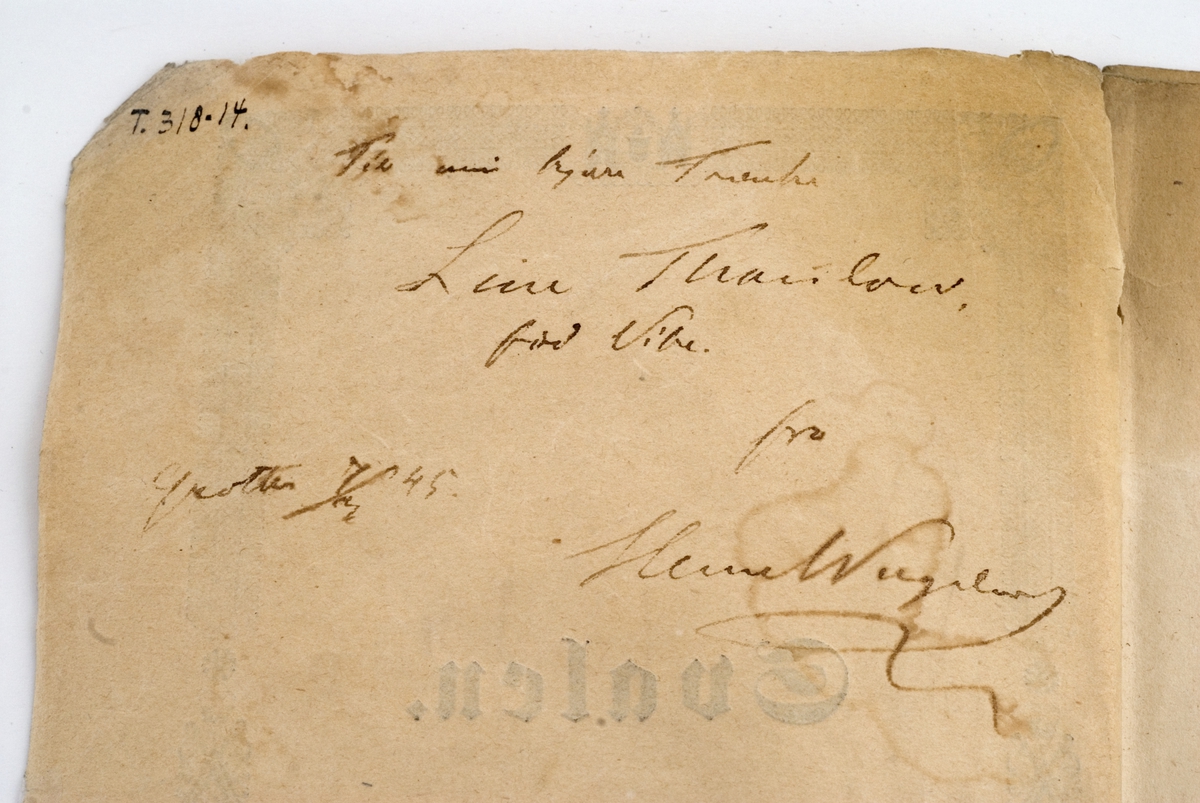 T. 318-14.
Til min kjære Frænke
Line Thaulow,
fød Vibe.
fra
Grotten 7/2 45.
Henr Wergeland
Svalen.